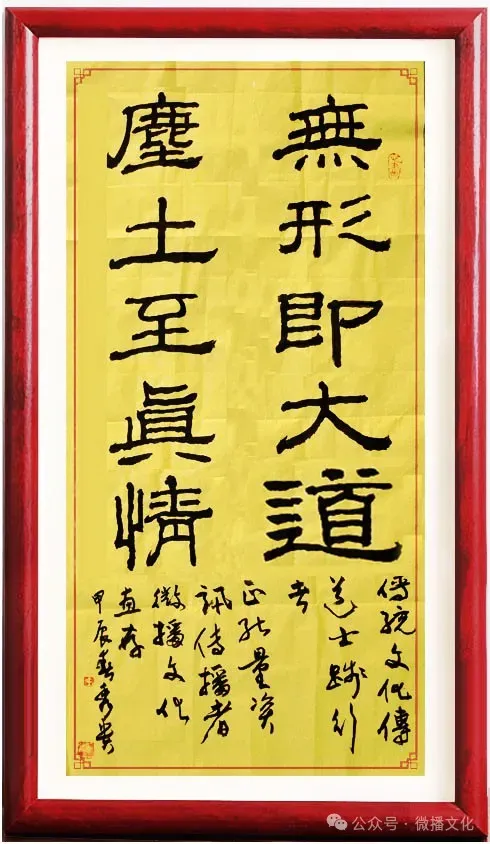 無形即大道
塵土至眞情
傳統文化傳
道士踐行
者
正能量资
訊传播者
微播文化
惠存
甲辰春秀
公众号 · 微播文化